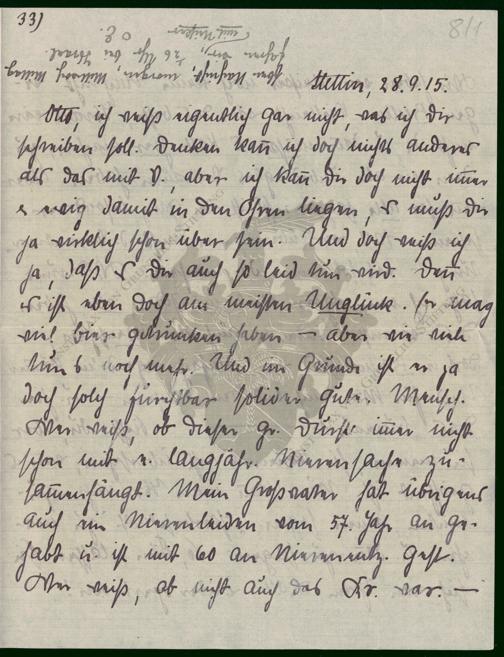 33)
8/1
Stettin, 28.9.15.
Otto, ich weiß eigentlich gar nicht, was ich dir
schreiben soll. Denken kann ich doch nichts anderes
als das mit V., aber ich kann dir doch nicht immer
u. ewig damit in den Ohren liegen, es muß dir
ja wirklich schon über sein. Und doch weiß ich
ja, daß es dir auch so leid tun wird. Denn
es ist eben doch am meisten Unglück. Er mag
viel Bier getrunken haben — aber wie viele
tun's noch mehr. Und im Grunde ist er ja
doch solch furchtbar solider guter Mensch.
Wer weiß, ob dieser gr. Durst immer nicht
schon mit e. langjähr. Nierensache zu-
sammenhängt. Mein Großvater hat übrigens
auch ein Nierenleiden vom 57. Jahr an ge-
habt u. ist mit 60 an Nierenentz. gest.
Wer weiß, ob nicht auch das Kr. war. —